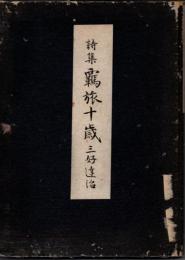 詩集 羇旅十歳 三好達治